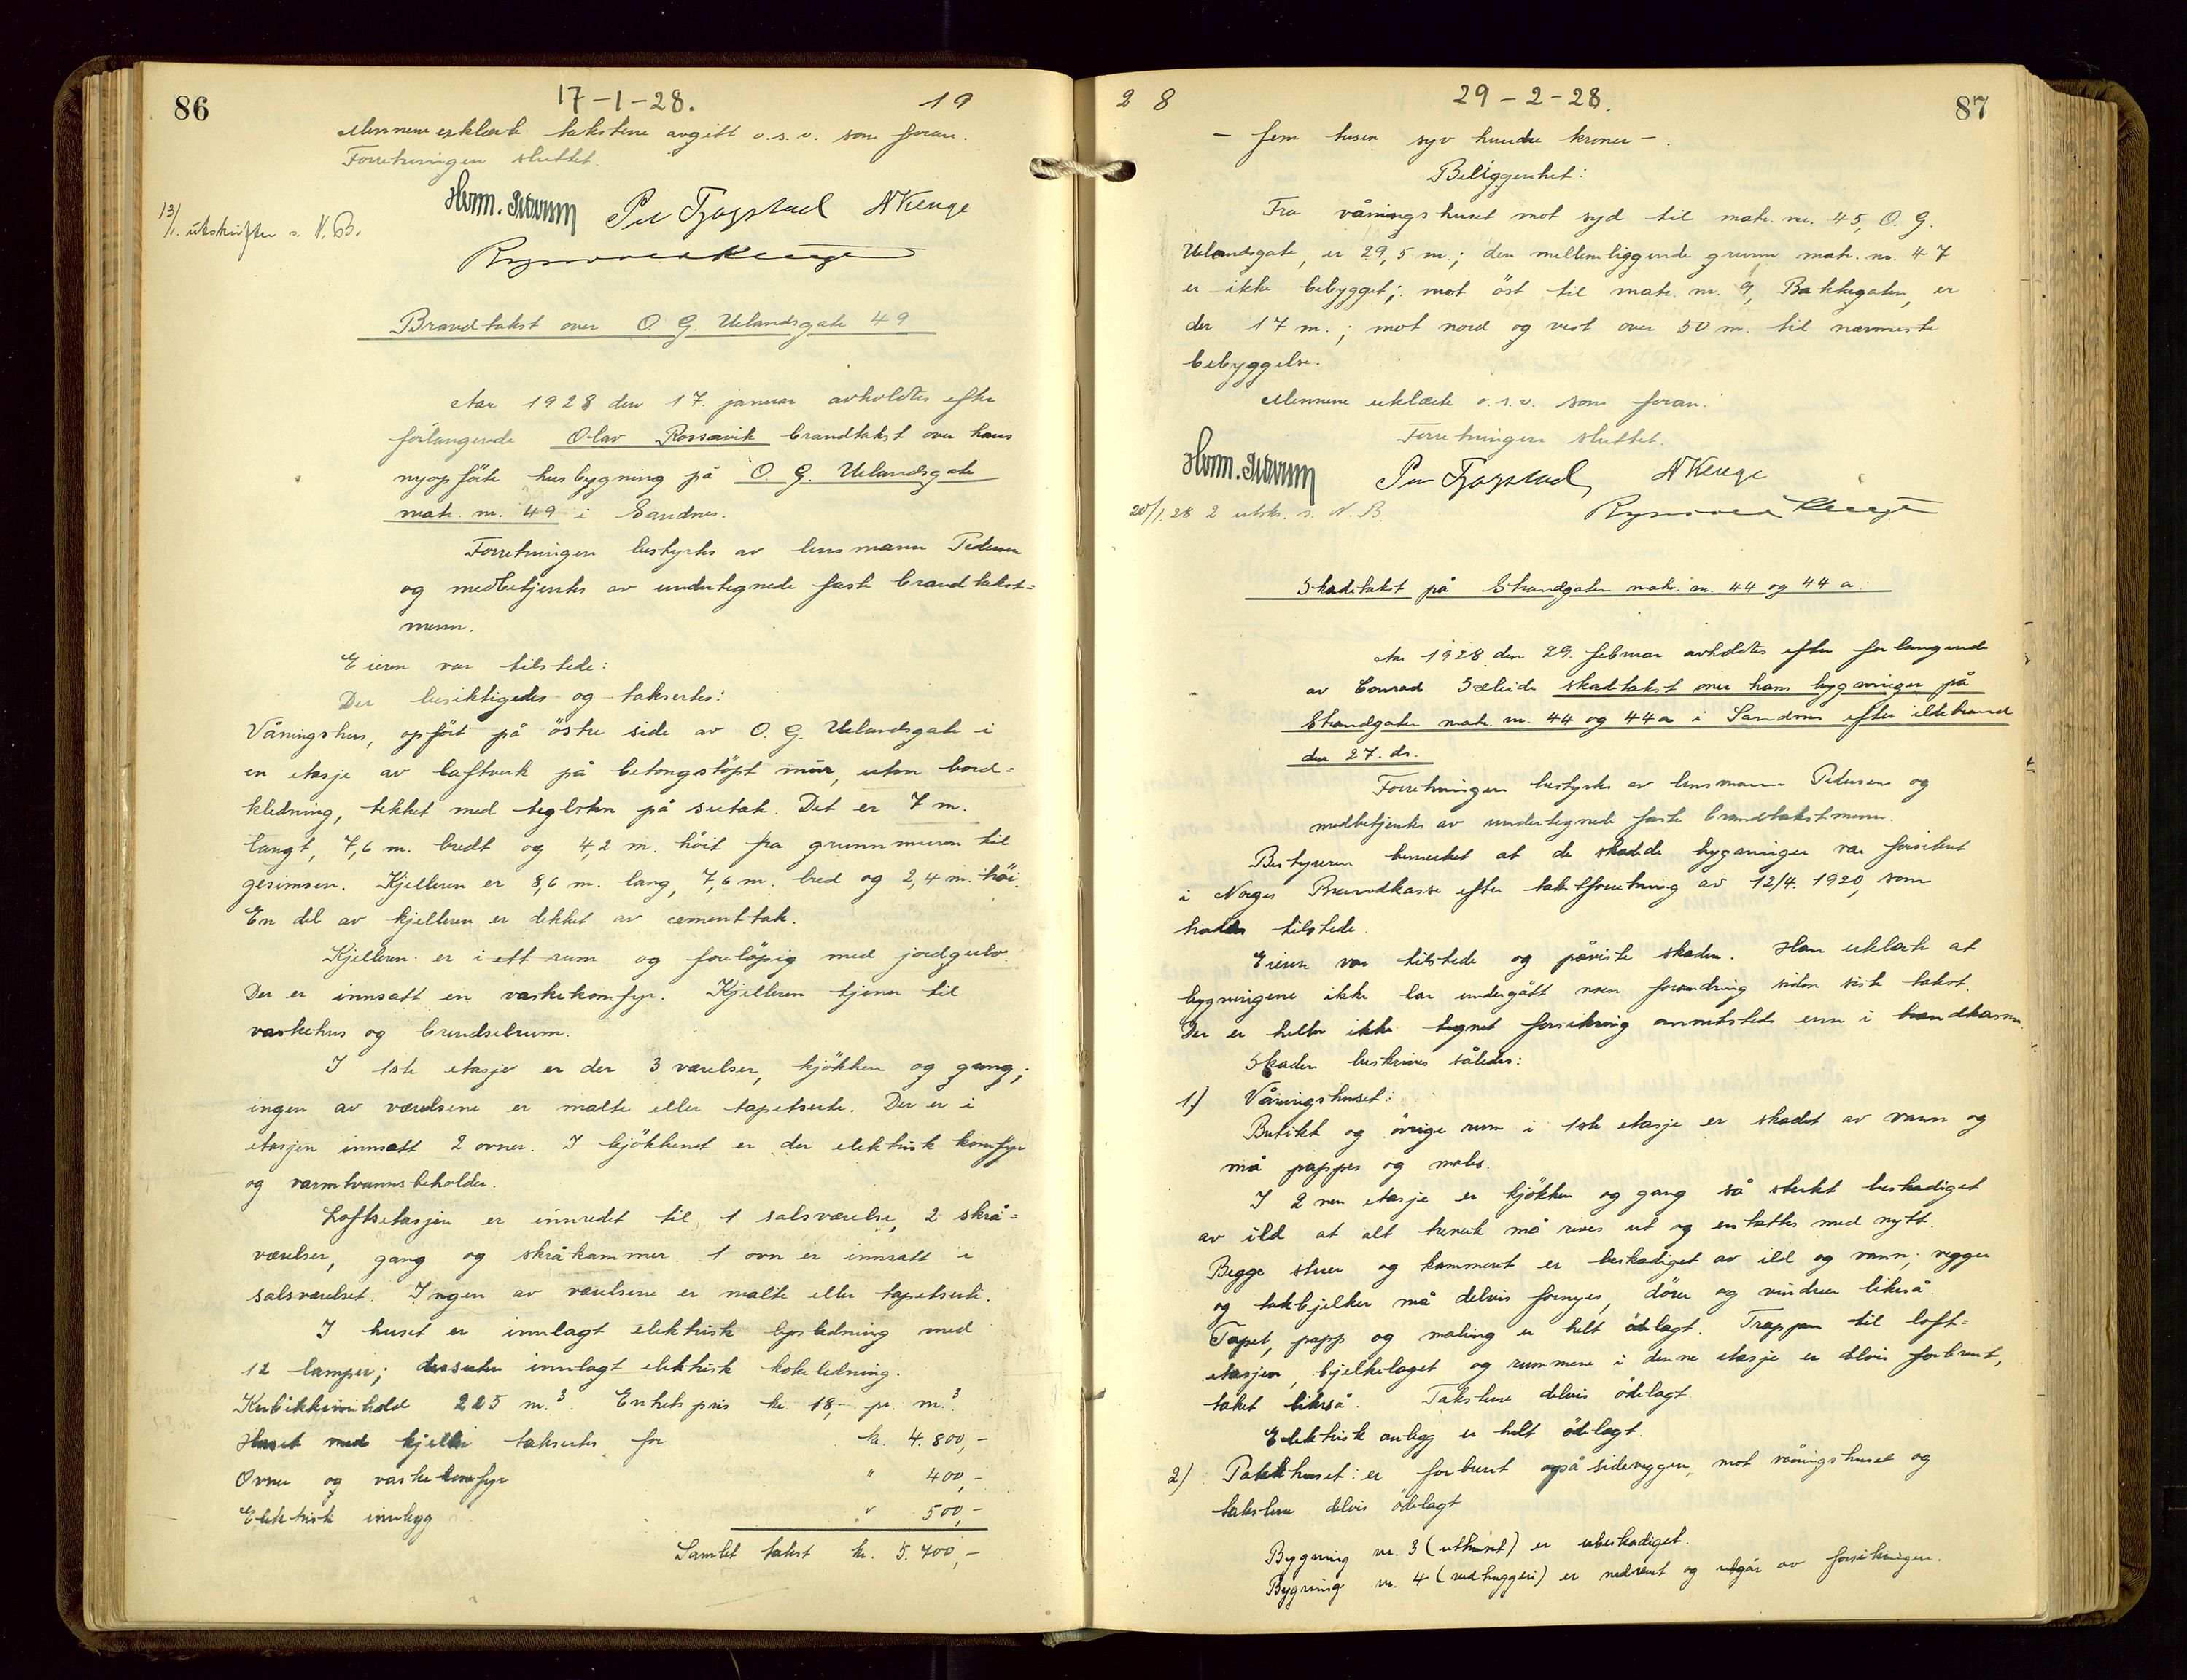 86
17-1-28.
19
Mennene erklærte takstene avgitt o.s.v. som foran.
Forretningen sluttet.
Per Tjogstad
13/1. utskrifter s. N.B.
Brandtakst over O. G. Uelandsgate 49
Aar 1928 den 17. januar avholdtes efter
forlangende Olav Rossavik brandtakst over hans
nyopförte husbygning på O. G. Uelandsgate
matr. nr. 49 i Sandnes.
Forretningen bestyrtes av lensmann Pedersen
og medbetjentes av undertegnede faste brandtakst=
menn.
Eieren var tilstede:
Der besiktigedes og taksertes:
Våningshus, opfört på östre side av O. G. Uelandsgate i
en etasje av laftverk på betongstöpt mur, uten bord=
kledning, tekket med teglsten på sutak. Det er 7 m.
langt, 7,6 m. bredt og 4,2 m. höit fra grunnmuren til
gesimsen. Kjelleren er 8,6 m. lang, 7,6 m. bred og 2,4 m. höi.
En del av kjelleren er dekket av cementtak.
Kjelleren er i ett rum og forelöpig med jordgulv.
Der er innsatt en vaskekomfyr. Kjelleren tjener til
vaskehus og brendselrum.
I 1ste etasje er der 3 værelser, kjökken og gang;
ingen av værelsene er malte eller tapetserte. Der er i
etasjen innsatt 2 ovner. I kjökkenet er der elektrisk komfyr
og varmtvannsbeholder.
Loftsetasjen er innredet til 1 salsværelse, 2 skrå=
værelser, gang og skråkammer. 1 ovn er innsatt i
salsværelset. Ingen av værelsene er malte eller tapetserte.
I huset er innlagt elektrisk lysledning med
12 lamper; dessuten innlagt elektrisk kokeledning.
Kubikkinnhold 225 m.³ Enhetspris kr. 18,- pr. m.³
Huset med kjeller takseres for kr. 4.800,-
Ovner og vaskekomfyr " 400,-
Elektrisk innlegg " 500,-
Samlet takst kr. 5.700,-
28
29-2-28.
87
- fem tusen syv hundre kroner -.
Beliggenhet:
Fra våningshuset mot syd til matr. nr. 45, O. G.
Uelandsgate, er 29,5 m.; den mellemliggende grunn matr. nr. 47
er ikke bebygget; mot öst til matr. nr. 9, Bakkegaten, er
der 17 m.; mot nord og vest over 50 m. til nærmeste
bebyggelse.
Mennene erklærte o.s.v. som foran.
Forretningen sluttet.
Per Tjogstad
20/1.28 2 utskr. s. N.B.
Skadetakst på Strandgaten matr. nr. 44 og 44 a.
Aar 1928 den 29. februar avholdtes efter forlangende
av Conrad Sælinde skadetakst over hans bygninger på
Strandgaten matr. nr. 44 og 44a i Sandnes efter ildebrand
den 27. ds.
Forretningen bestyrtes av lensmann Pedersen og
medbetjentes av undertegnede faste brandtakstmenn.
Bestyreren bemerket at de skadede bygninger var forsikret
i Norges Brandkasse efter takstforretning av 12/4. 1920, som
hades tilstede.
Eieren var tilstede og påviste skaden. Han erklærte at
bygningene ikke har undergått noen forandring siden siste takst.
Der er heller ikke tegnet forsikring annetsteds enn i brandkassen.
Skaden beskrives således:
1.) Våningshuset:
Butikk og övrige rum i 1ste etasje er skadet av vann og
må pappes og males.
I 2nen etasje er kjökken og gang så sterkt beskadiget
av ild at alt treverk må rives ut og erstattes med nytt.
Begge stuer og kammeret er beskadiget av ild og vann, vegger
og takbjelker må delvis fornyes, dörer og vinduer likeså.
Tapet, papp og maling er helt ödelagt. Trappen til loft=
etasjen, bjelkelaget og rummene i denne etasje er delvis forbrent,
taket likeså. Takstene delvis ödelagt.
Elektrisk anlegg er helt ödelagt.
2) Pakkhuset: er forbrent også sideveggen mot våningshuset og
takstene delvis ödelagt
Bygning nr. 3 (uthuset) er ubeskadiget.
Bygning nr. 4 (vedhuggeri) er nedrevet og utgår av forsikringen.